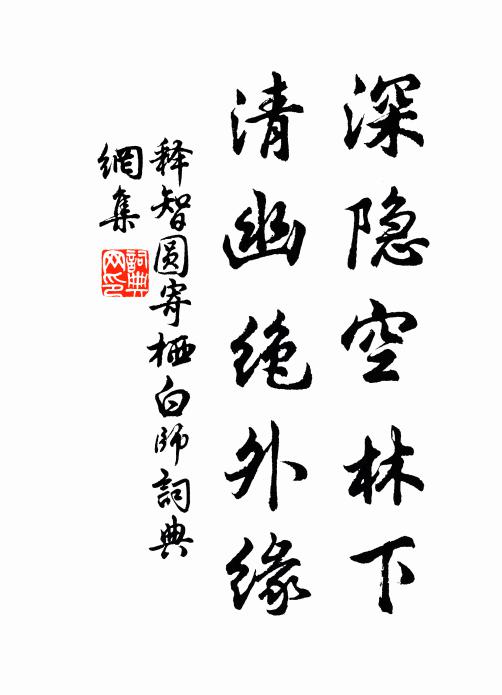 深隐空林下
清幽绝外缘
释智圆寄栖白师詞典
網集
詞典
网印